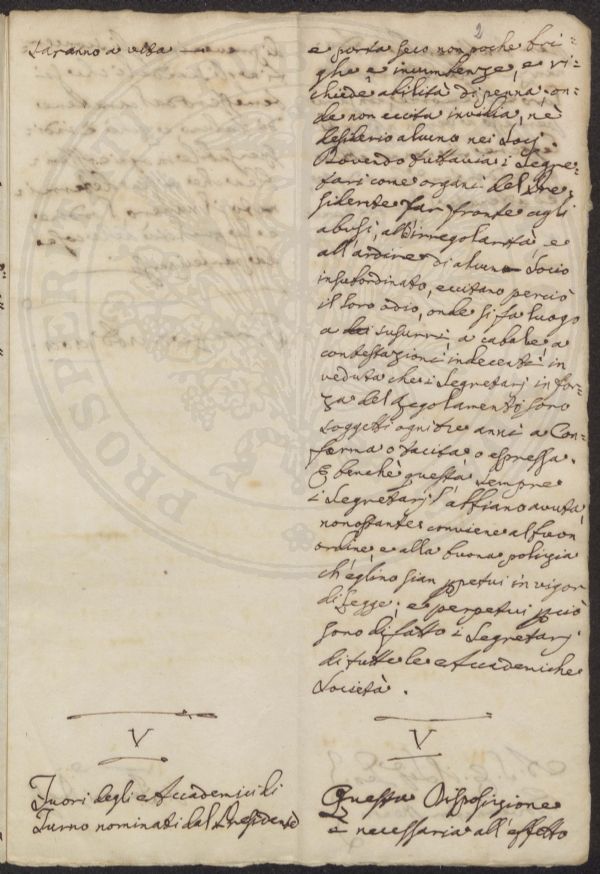 2
saranno a vita
e porta seco non poche bri=
ghe e incumbenze, e ri=
chiede abilità di penna, on=
de non eccita invidia, nè
desiderio alcuno nei Socj.
Dovendo tuttavia i Segre=
tarj come organi del Pre=
sidente far fronte agli
abusi, all'irregolarità e
all'ardire di alcun Socio
insubordinato, eccitano perciò
il loro odio, onde si fa luogo
a susurri, a cabale, a
contestazioni indecenti in
veduta che i Segretarj in for=
za del Regolamento sono
soggetti ogni tre anni a Con=
ferma o tacita o espressa.
E benchè questa sempre
i Segretarj l'abbiano avuta,
nonostante conviene al buon
ordine, e alla buona polizia
ch'eglino sian ppetui in vigor
di Legge; e perpetui pciò
sono di fatto i Segretarj
di tutte le Accademiche
Società.
V
V
Fuori degli Accademici di
Turno nominati dal Presidente
Questa Disposizione
è necessaria all'effetto
PROSPERI